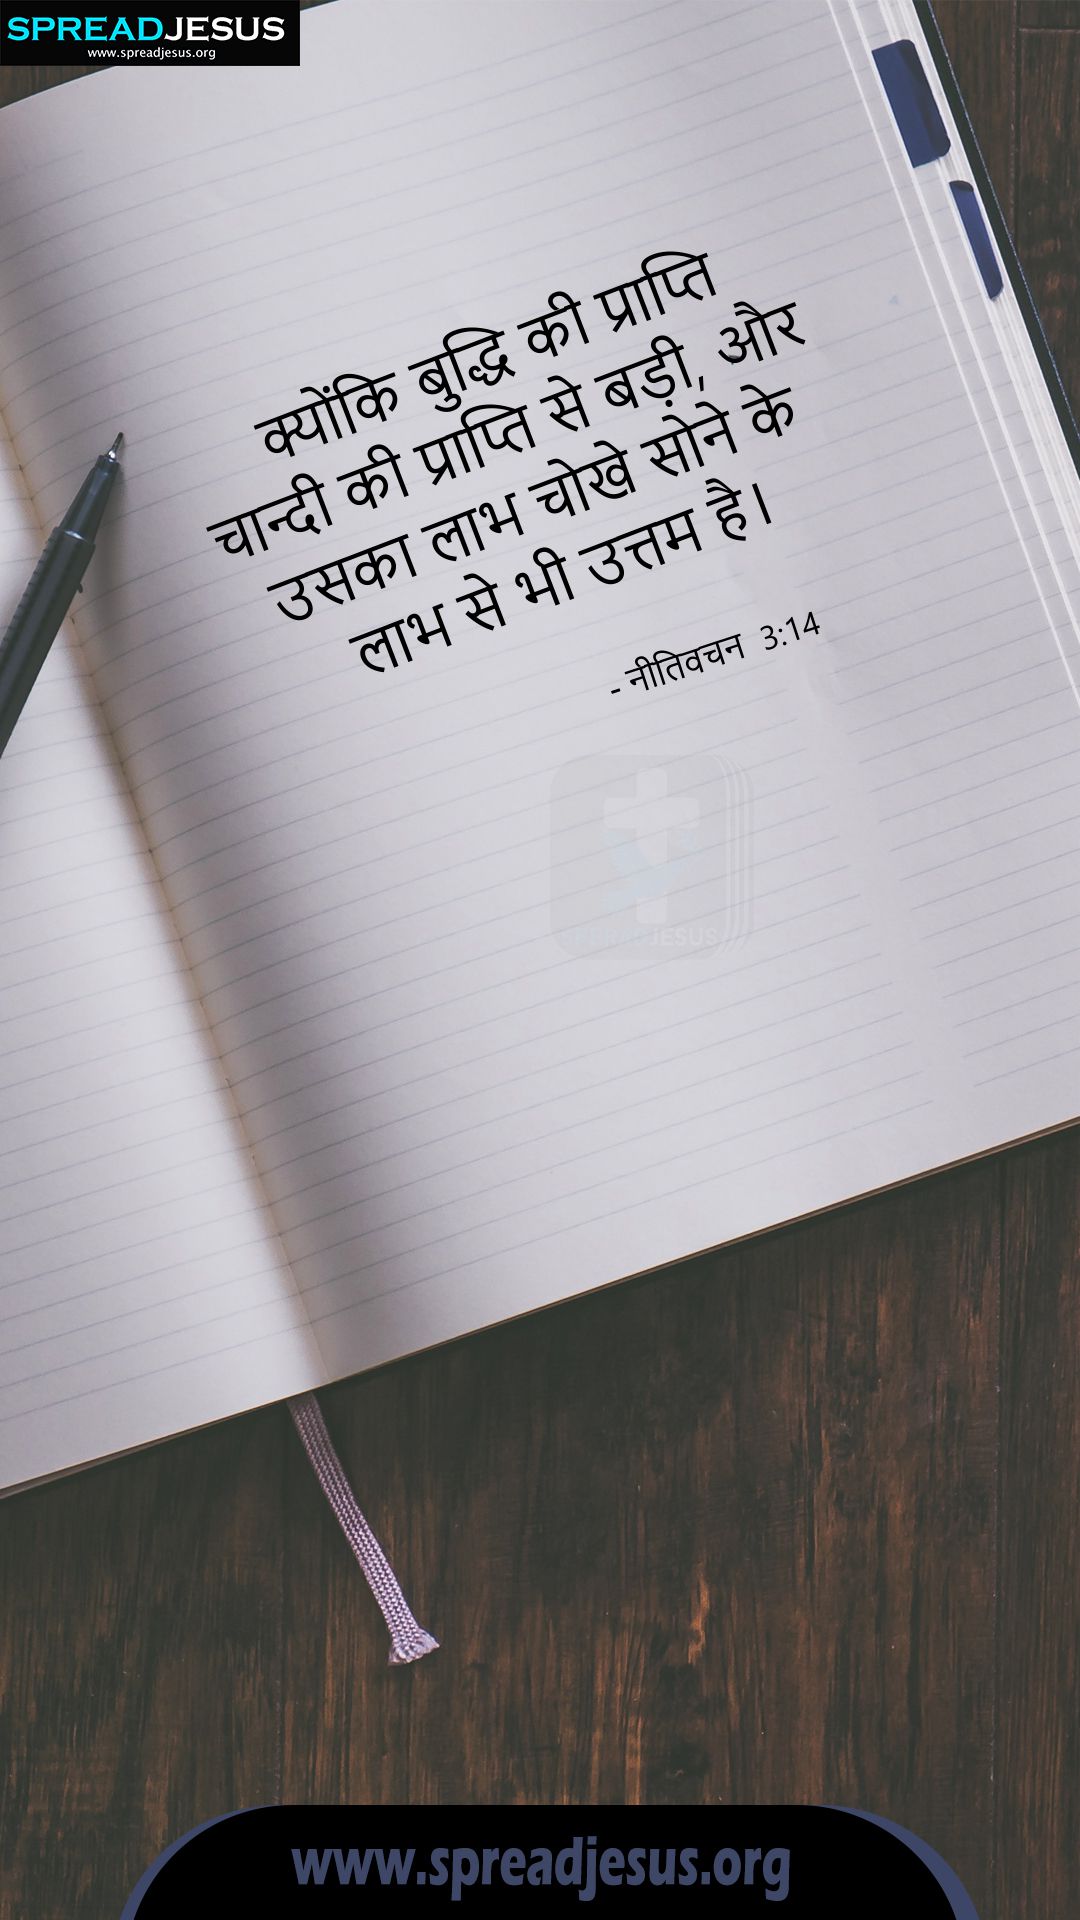 SPREADJESUS
www.spreadjesus.org
क्योंकि बुद्धि की प्राप्ति
चान्दी की प्राप्ति से बड़ी, और
उसका लाभ चोखे सोने के
लाभ से भी उत्तम है।
- नीतिवचन 3:14
SPREADJESUS
www.spreadjesus.org